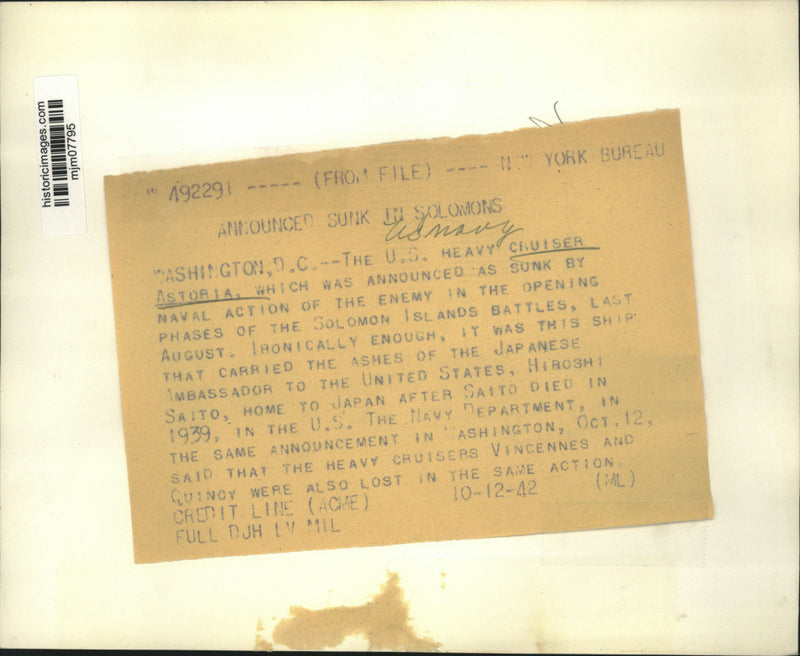 historicimages.com
mjm07795
492291 ----- (FROM FILE) ---- NEW YORK BUREAU
ANNOUNCED SUNK IN SOLOMONS
US navy
WASHINGTON, D.C.--THE U.S. HEAVY CRUISER
ASTORIA, WHICH WAS ANNOUNCED AS SUNK BY
NAVAL ACTION OF THE ENEMY IN THE OPENING
PHASES OF THE SOLOMON ISLANDS BATTLES, LAST
AUGUST. IRONICALLY ENOUGH, IT WAS THIS SHIP
THAT CARRIED THE ASHES OF THE JAPANESE
AMBASSADOR TO THE UNITED STATES, HIROSHI
SAITO, HOME TO JAPAN AFTER SAITO DIED IN
1939, IN THE U.S. THE NAVY DEPARTMENT, IN
THE SAME ANNOUNCEMENT IN WASHINGTON, OCT. 12,
SAID THAT THE HEAVY CRUISERS VINCENNES AND
QUINCY WERE ALSO LOST IN THE SAME ACTION.
CREDIT LINE (ACME) 10-12-42 (ML)
FULL DJH LV MIL